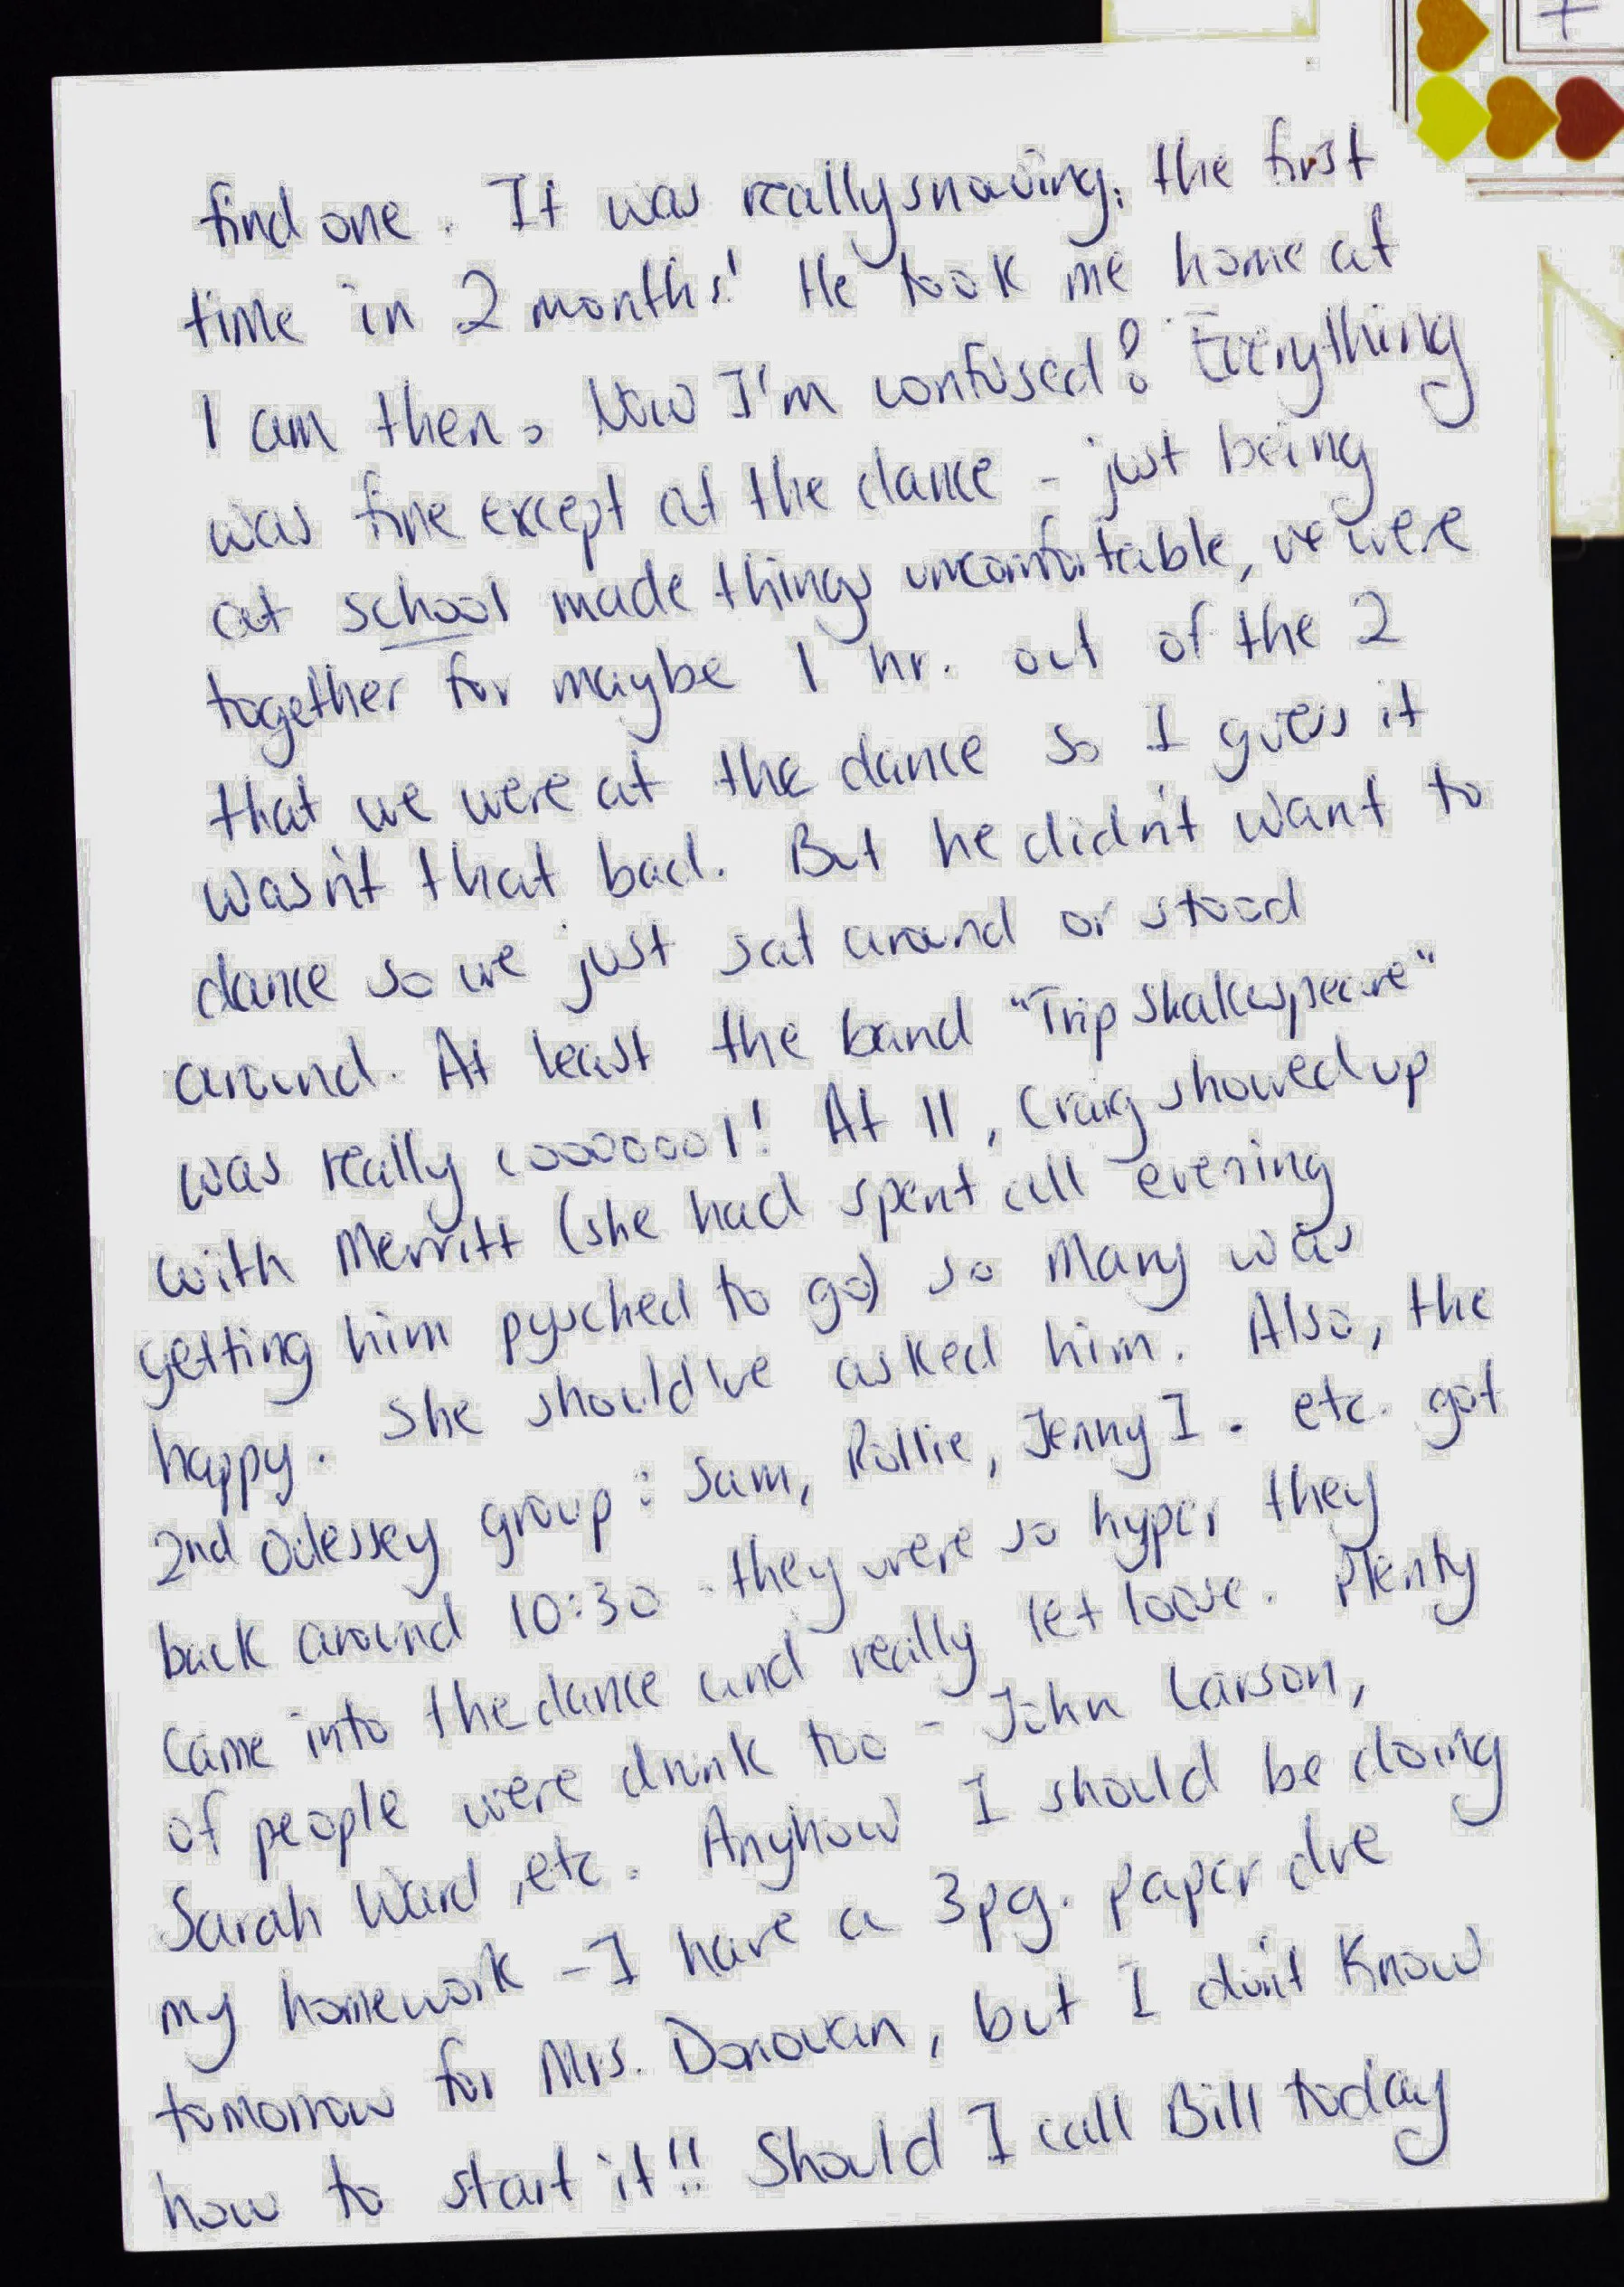 find one. It was really snowing; the first
time in 2 months! He took me home at
1 am then. Now I'm confused! Everything
was fine except at the dance - just being
at school made things uncomfortable, we were
together for maybe 1 hr. out of the 2
that we were at the dance so I guess it
wasn't that bad. But he didn't want to
dance so we just sat around or stood
around. At least the band "Trip Shakespeare"
was really cooooool! At 11, Craig showed up
with Merritt (she had spent all evening
getting him pysched to go) so Mary was
happy. She should've asked him. Also, the
2nd Odessey group: Sam, Rollie, Jenny I. etc. got
back around 10:30 - they were so hyper they
came into the dance and really let loose. Plenty
of people were drunk too - John Larson,
Sarah Ward, etc. Anyhow I should be doing
my homework - I have a 3pg. paper due
tomorrow for Mrs. Donovan, but I don't know
how to start it!! Should I call Bill today